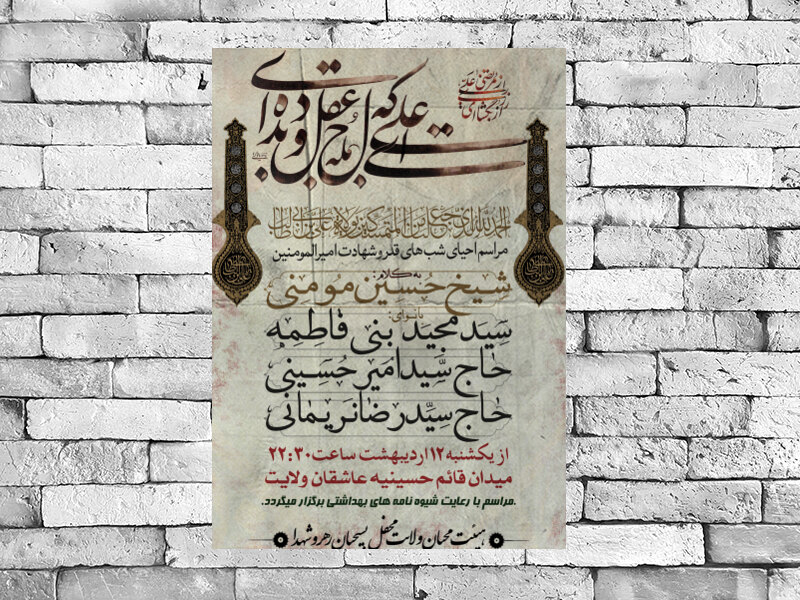 ای علی که جمله عقل و دیده‌ای
الحمدلله الذی جعلنا من المتمسکین بولایة علی بن ابی طالب
مراسم احیای شب های قدر و شهادت امیرالمومنین
به کلام:
شیخ حسین مومنی
با نوای:
سید مجید بنی فاطمه
حاج سید امیر حسینی
حاج سید رضا نریمانی
از یکشنبه ۱۲ اردیبهشت ساعت ۲۲:۳۰
میدان قائم حسینیه عاشقان ولایت
.مراسم با رعایت شیوه نامه های بهداشتی برگزار میگردد.
هیئت محبان ولایت محفل بسیجیان رهرو شهدا